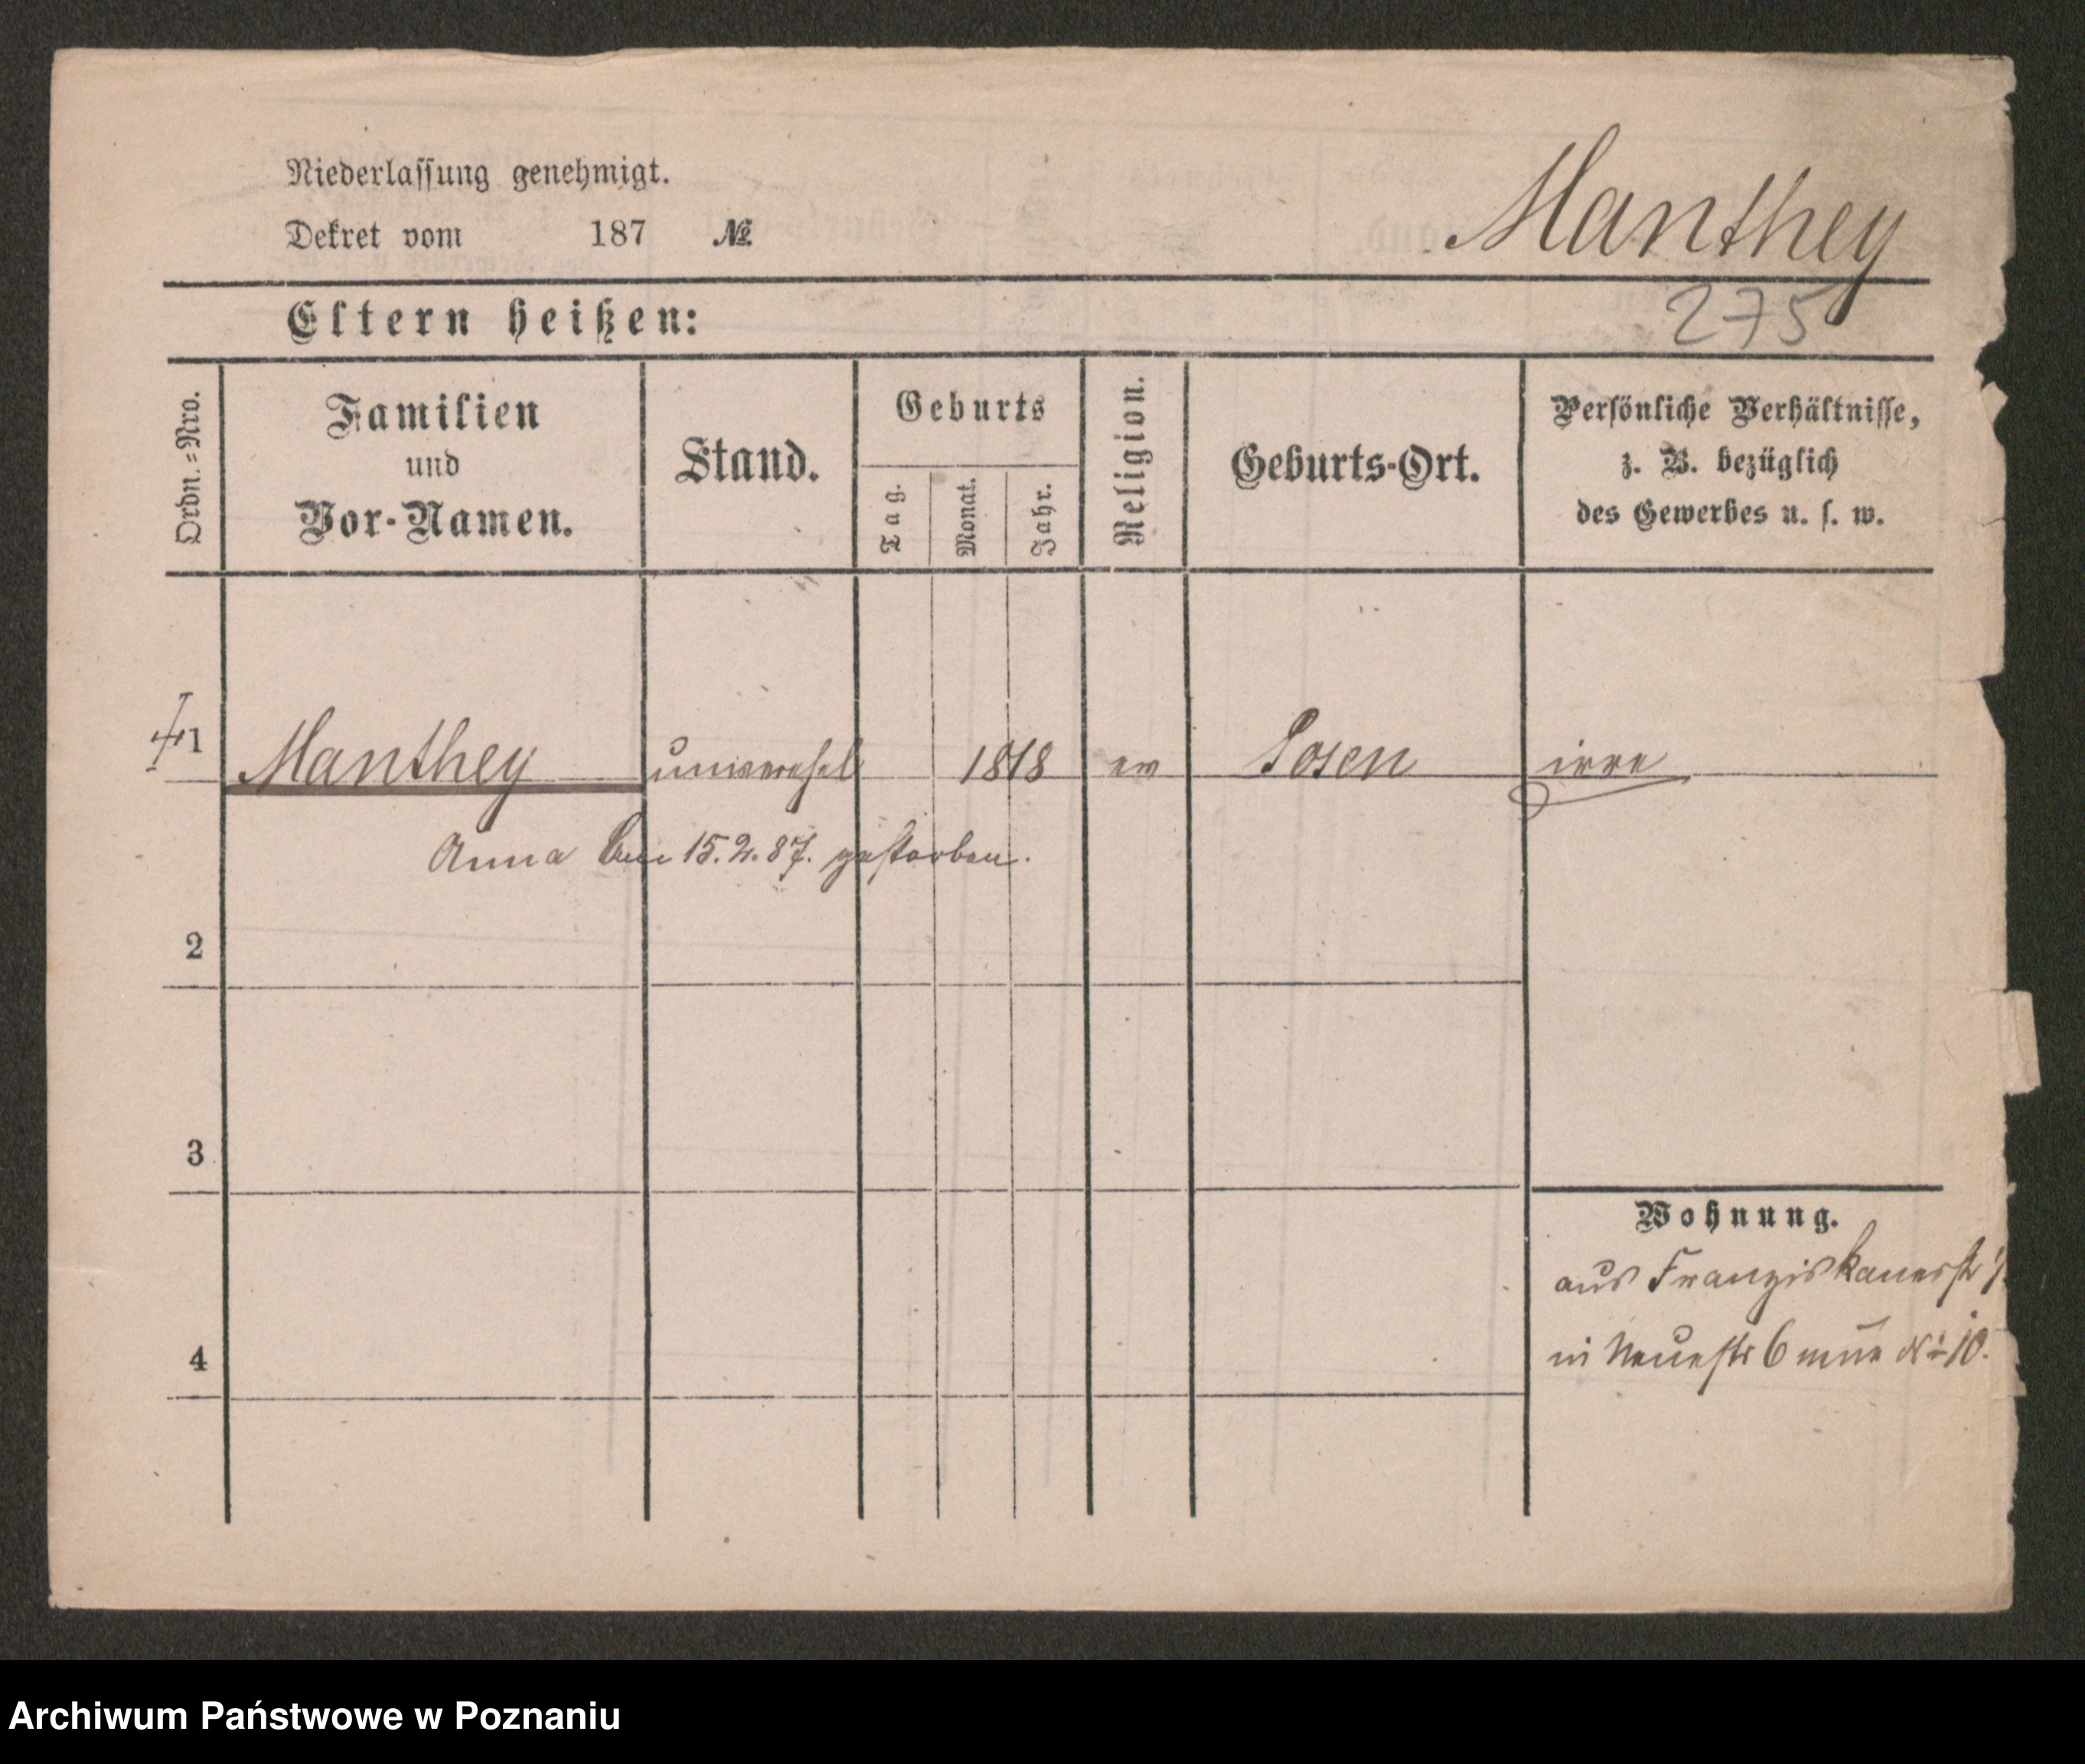 Niederlassung genehmigt.
Dekret vom 187 №
Manthey
275
Eltern heißen:
Ordn.=Nro.
Familien
und
Vor-Namen.
Stand.
Geburts
Tag.
Monat.
Jahr.
Religion.
Geburts-Ort.
Persönliche Verhältnisse,
z. B. bezüglich
des Gewerbes u. s. w.
1 Manthey unverehel 1818 ev Posen irre
Anna den 15.2.87. gestorben.
2
3
4
Wohnung.
aus Franziskanerst
in Neuestr 6 № 10.